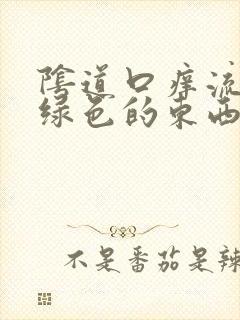 陰道口痒流
绿色的东西
不是番茄是辣